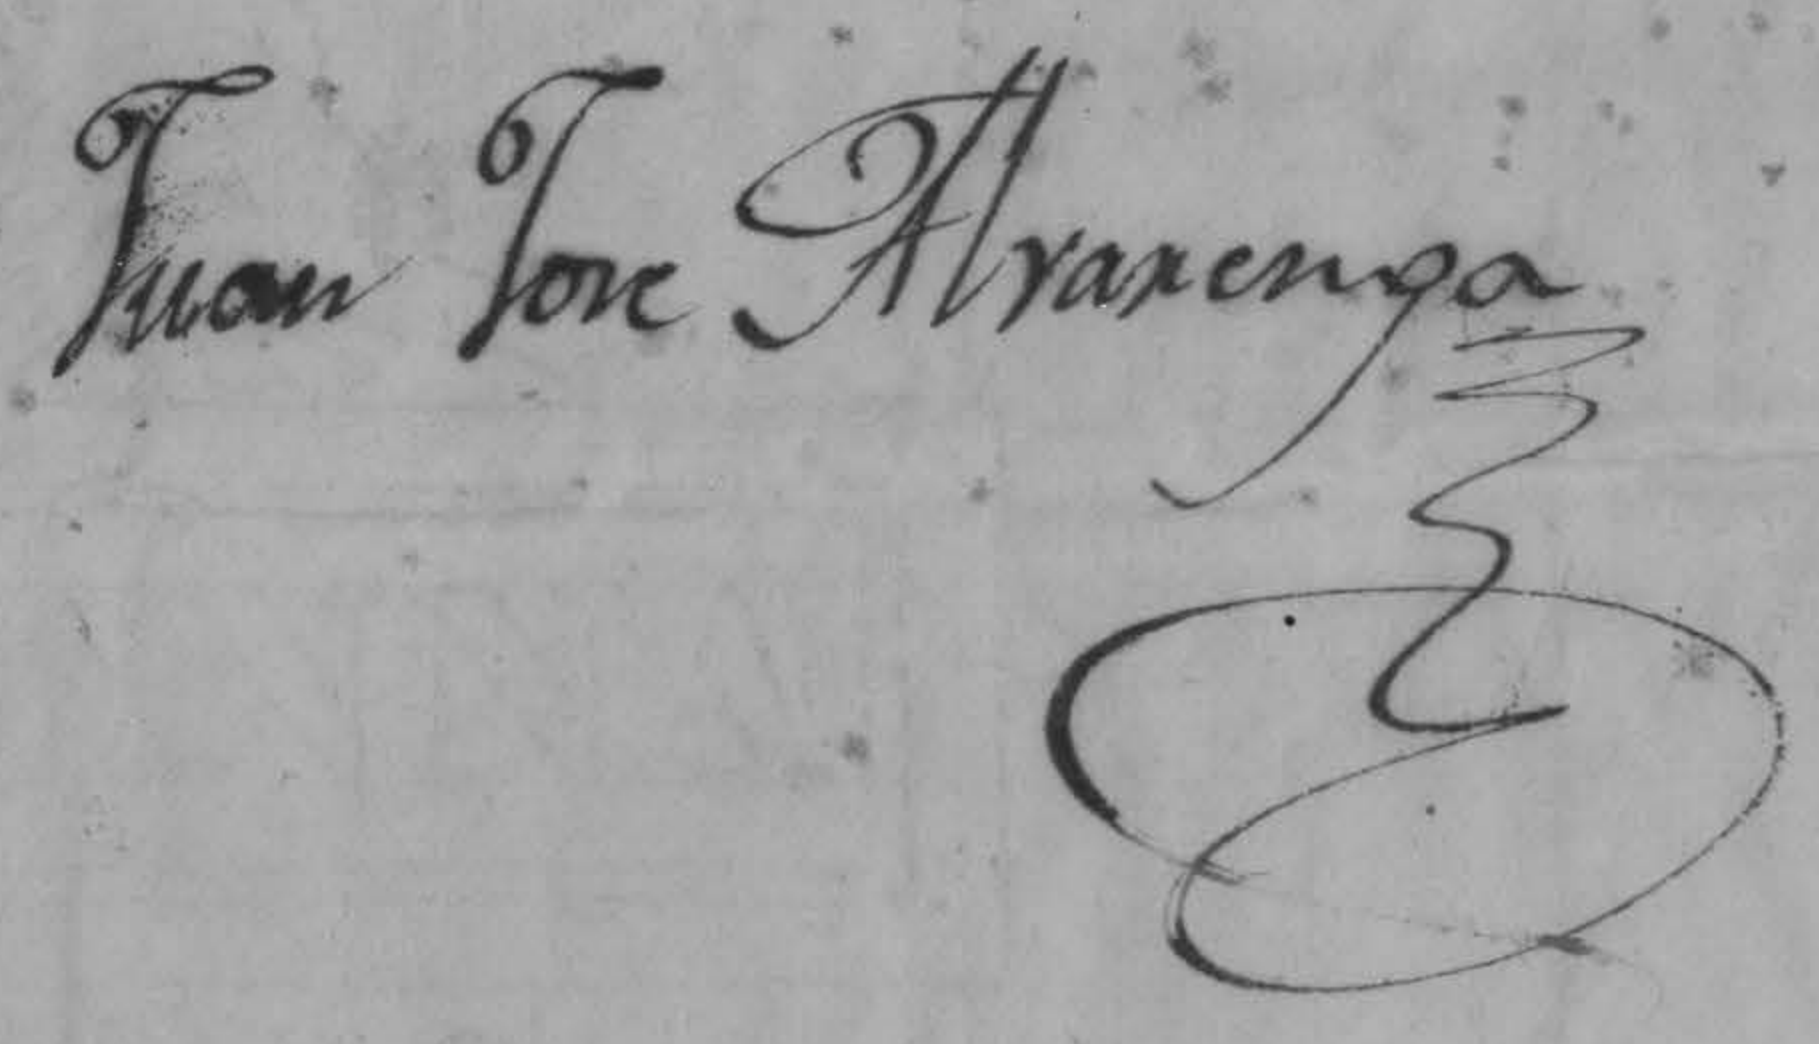 Juan Jose Alvarenga